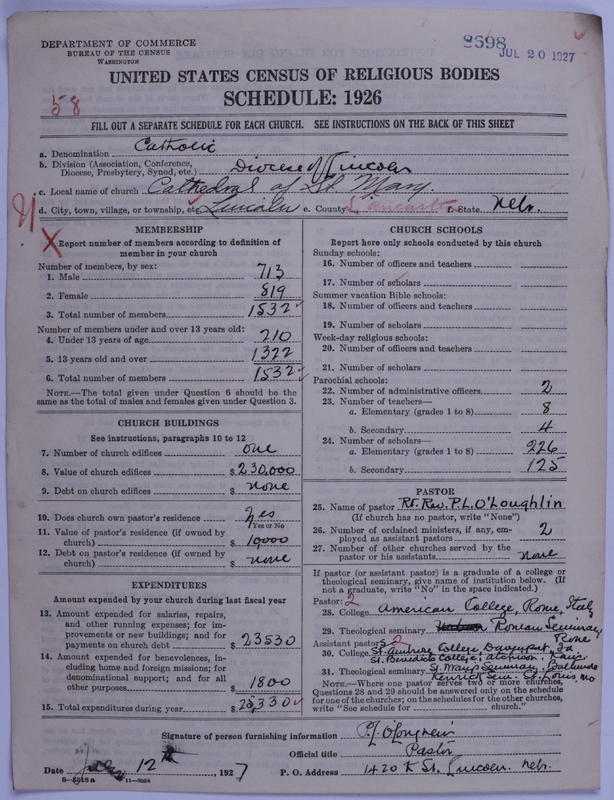 DEPARTMENT OF COMMERCE
BUREAU OF THE CENSUS
WASHINGTON
8698
JUL 20 1927
UNITED STATES CENSUS OF RELIGIOUS BODIES
SCHEDULE: 1926
58
FILL OUT A SEPARATE SCHEDULE FOR EACH CHURCH. SEE INSTRUCTIONS ON THE BACK OF THIS SHEET
a. Denomination Catholic
b. Division (Association, Conference, Diocese, Presbytery, Synod, etc.) Diocese of Lincoln
c. Local name of church Cathedral of St. Mary.
d. City, town, village, or township, etc. Lincoln e. County Lancaster f. State Nebr.
MEMBERSHIP
X
Report number of members according to definition of
member in your church
Number of members, by sex:
1. Male 713
2. Female 819
3. Total number of members 1532
Number of members under and over 13 years old:
4. Under 13 years of age 210
5. 13 years old and over 1322
6. Total number of members 1532
NOTE.—The total given under Question 6 should be
the same as the total of males and females given under Question 3.
CHURCH BUILDINGS
See instructions, paragraphs 10 to 12
7. Number of church edifices one
8. Value of church edifices $ 230,000
9. Debt on church edifices $ none
10. Does church own pastor's residence Yes
Yes or No
11. Value of pastor's residence (if owned by
church) $ 10,000
12. Debt on pastor's residence (if owned by
church) $ none
EXPENDITURES
Amount expended by your church during last fiscal year
13. Amount expended for salaries, repairs,
and other running expenses; for im-
provements or new buildings; and for
payments on church debt $ 23530
14. Amount expended for benevolences, in-
cluding home and foreign missions; for
denominational support; and for all
other purposes $ 1800
15. Total expenditures during year $ 25,330
CHURCH SCHOOLS
Report here only schools conducted by this church
Sunday schools:
16. Number of officers and teachers
17. Number of scholars
Summer vacation Bible schools:
18. Number of officers and teachers
19. Number of scholars
Week-day religious schools:
20. Number of officers and teachers
21. Number of scholars
Parochial schools:
22. Number of administrative officers 2
23. Number of teachers—
a. Elementary (grades 1 to 8) 8
b. Secondary 4
24. Number of scholars—
a. Elementary (grades 1 to 8) 226
b. Secondary 125
PASTOR
25. Name of pastor Rt. Rev. P.L. O'Loughlin
(If church has no pastor, write "None")
26. Number of ordained ministers, if any, em-
ployed as assistant pastors 2
27. Number of other churches served by the
pastor or his assistants none
If pastor (or assistant pastor) is a graduate of a college or
theological seminary, give name of institution below. (If
not a graduate, write "No" in the space indicated.)
Pastor: 2
28. College American College, Rome, Italy
29. Theological seminary Roman Seminary
Rome
Assistant pastor: 2
30. College St. Ambrose College Davenport, Ia
St. Benedicts College, Atchison, Kans
31. Theological seminary St. Marys Seminary, Baltimore
Kenrick Sem. St. Louis, Mo
NOTE.—Where one pastor serves two or more churches,
Questions 28 and 29 should be answered only on the schedule
for one of the churches; on the schedules for the other churches,
write "See schedule for church."
Signature of person furnishing information P.L. O'Loughlin
Official title Pastor
Date July 12th, 1927 P. O. Address 1420 K St. Lincoln. Nebr.
8—5518a 11—9024